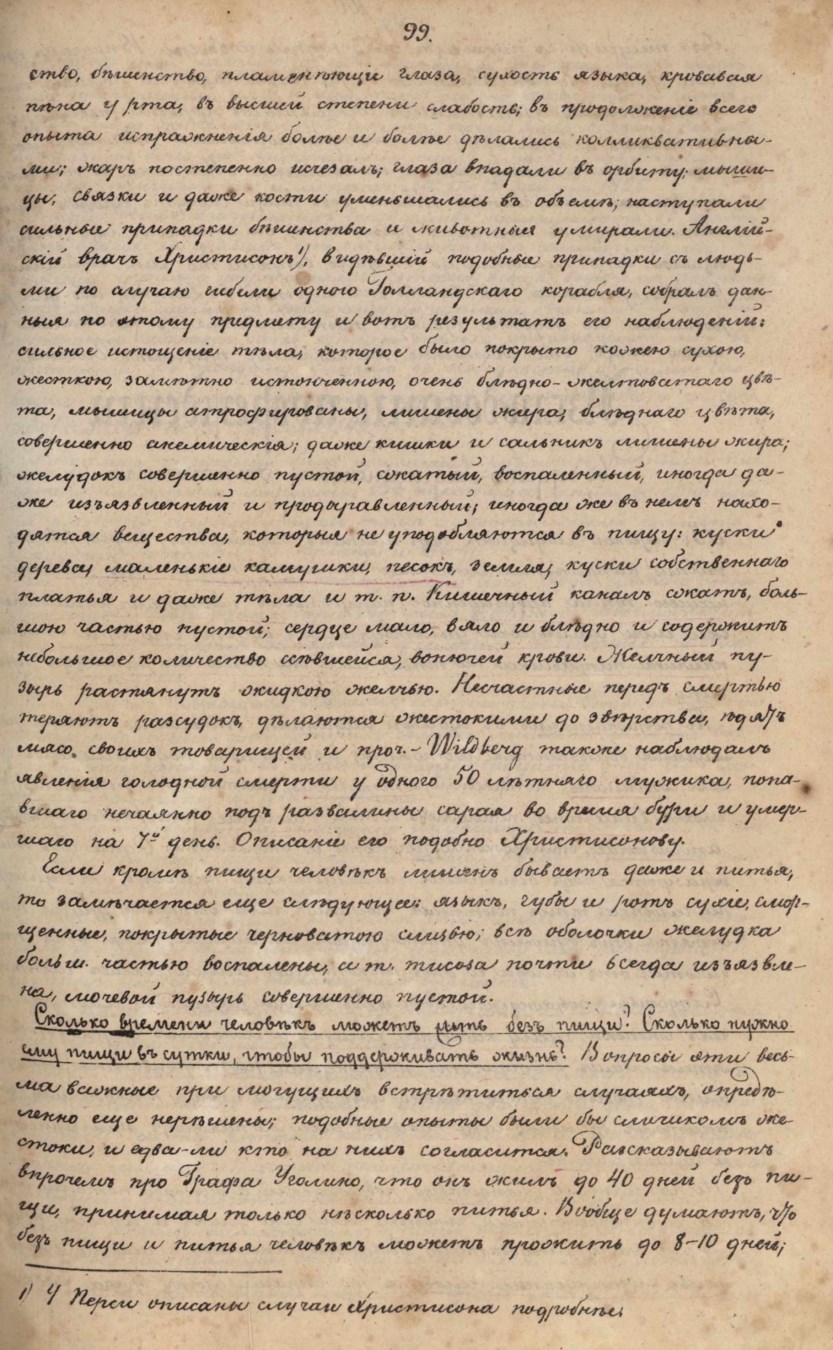 99.
ство, бѣшенство, пламенѣющіе глаза, сухость языка, кровавая
пѣна у рта, въ высшей степени слабость; въ продолженіе всего
опыта испражненія болѣе и болѣе дѣлались колликвативны-
ми; жаръ постепенно исчезалъ; глаза впадали въ орбиту. мыш-
цы, связки и даже кости уменьшались въ объемѣ; наступали
сильные припадки бѣшенства и животныя умирали. Англій-
скій врачъ Христисонъ¹⁾, видѣвшій подобные припадки съ людь-
ми по случаю гибели одного Голландскаго корабля, собралъ дан-
ныя по этому предмету и вотъ результатъ его наблюденій:
сильное истощеніе тѣла, которое было покрыто кожею сухою,
жесткою, замѣтно истонченною, очень блѣдно-желтоватаго цвѣ-
та, мышицы атрофированы, лишены жира, блѣднаго цвѣта,
совершенно анемическія; даже кишки и сальникъ лишены жира;
желудокъ совершенно пустой, сжатый, воспаленный, иногда да-
же изъязвленный и продыравленный; иногда же въ немъ нахо-
дятся вещества, которыя не уподобляются въ пищу: куски
дерева, маленькіе камушки, песокъ, земля, куски собственнаго
платья и даже тѣла и т. п. Кишечный каналъ сжатъ, боль-
шою частью пустой; сердце мало, вяло и блѣдно и содержитъ
небольшое количество сѣвшейся, вонючей крови. Желчный пу-
зырь растянутъ жидкою желчью. Несчастные передъ смертью
теряютъ разсудокъ, дѣлаются жестокими до звѣрства, ѣдятъ
мясо своихъ товарищей и проч. – Wildberg также наблюдалъ
явленія голодной смерти у одного 50 лѣтняго мужика, попа-
вшаго нечаянно подъ развалины сарая во время бури и умер-
шаго на 7й день. Описаніе его подобно Христисонову.
Если кромѣ пищи человѣкъ лишенъ бываетъ даже и питья,
то замѣчается еще слѣдующее: языкъ, губы и ротъ сухіе, смор-
щенные, покрытые черноватою слизью; всѣ оболочки желудка
больш. частью воспалены, а т. mucosa почти всегда изъязвле-
на, мочевой пузырь совершенно пустой.
Сколько времени человѣкъ можетъ быть безъ пищи? Сколько нужно
ему пищи въ сутки, чтобы поддерживать жизнь? Вопросы эти весь-
ма важные при могущихъ встрѣтиться случаяхъ, опредѣ-
ленно еще нерѣшены; подобные опыты были бы слишкомъ же-
стоки, и едва-ли кто на нихъ согласится. Разсказываютъ
впрочемъ про Графа Уголино, что онъ жилъ до 40 дней безъ пи-
щи, принимая только нѣсколько питья. Вообще думаютъ, что
безъ пищи и питья человѣкъ можетъ прожить до 8–10 дней;
1) У Перси описаны случаи Христисона подробнѣе.